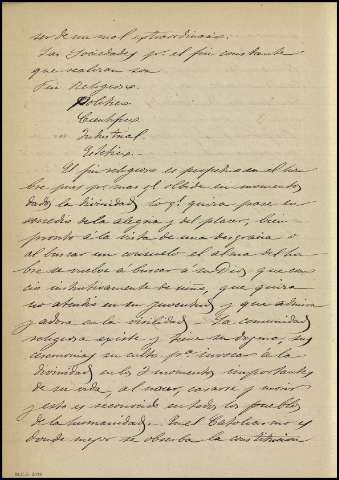 ser de un mal extraordinario.
Las Sociedades pr. el fin constante
que realizan son
Fin Religioso
Politico
Cientifico
" Industrial
Estetico
El fin religioso es propedia en el hom
bre pues por mas q. olvide en momentos
dados la divinidad, lo q.
en
medio de la alegria y del placer, bien
pronto á la vista de una desgracia o
al buscar un consuelo el alma del hom
bre se vuelve a buscar á su Dios que cono
cio instintivamente de niño, que quizá
no atendio en su juventud y que admira
y adora en la virilidad. La comunidad
religiosa existe y tiene su dogma, sus
ceremonias su culto pa. invocar á la
divinidad en los 3 momentos importantes
de su vida, al nacer, casarse y morir
y esto es reconocido en todos los pueblos
de la humanidad. En el Catolicismo es
donde mejor se observa la constitucion